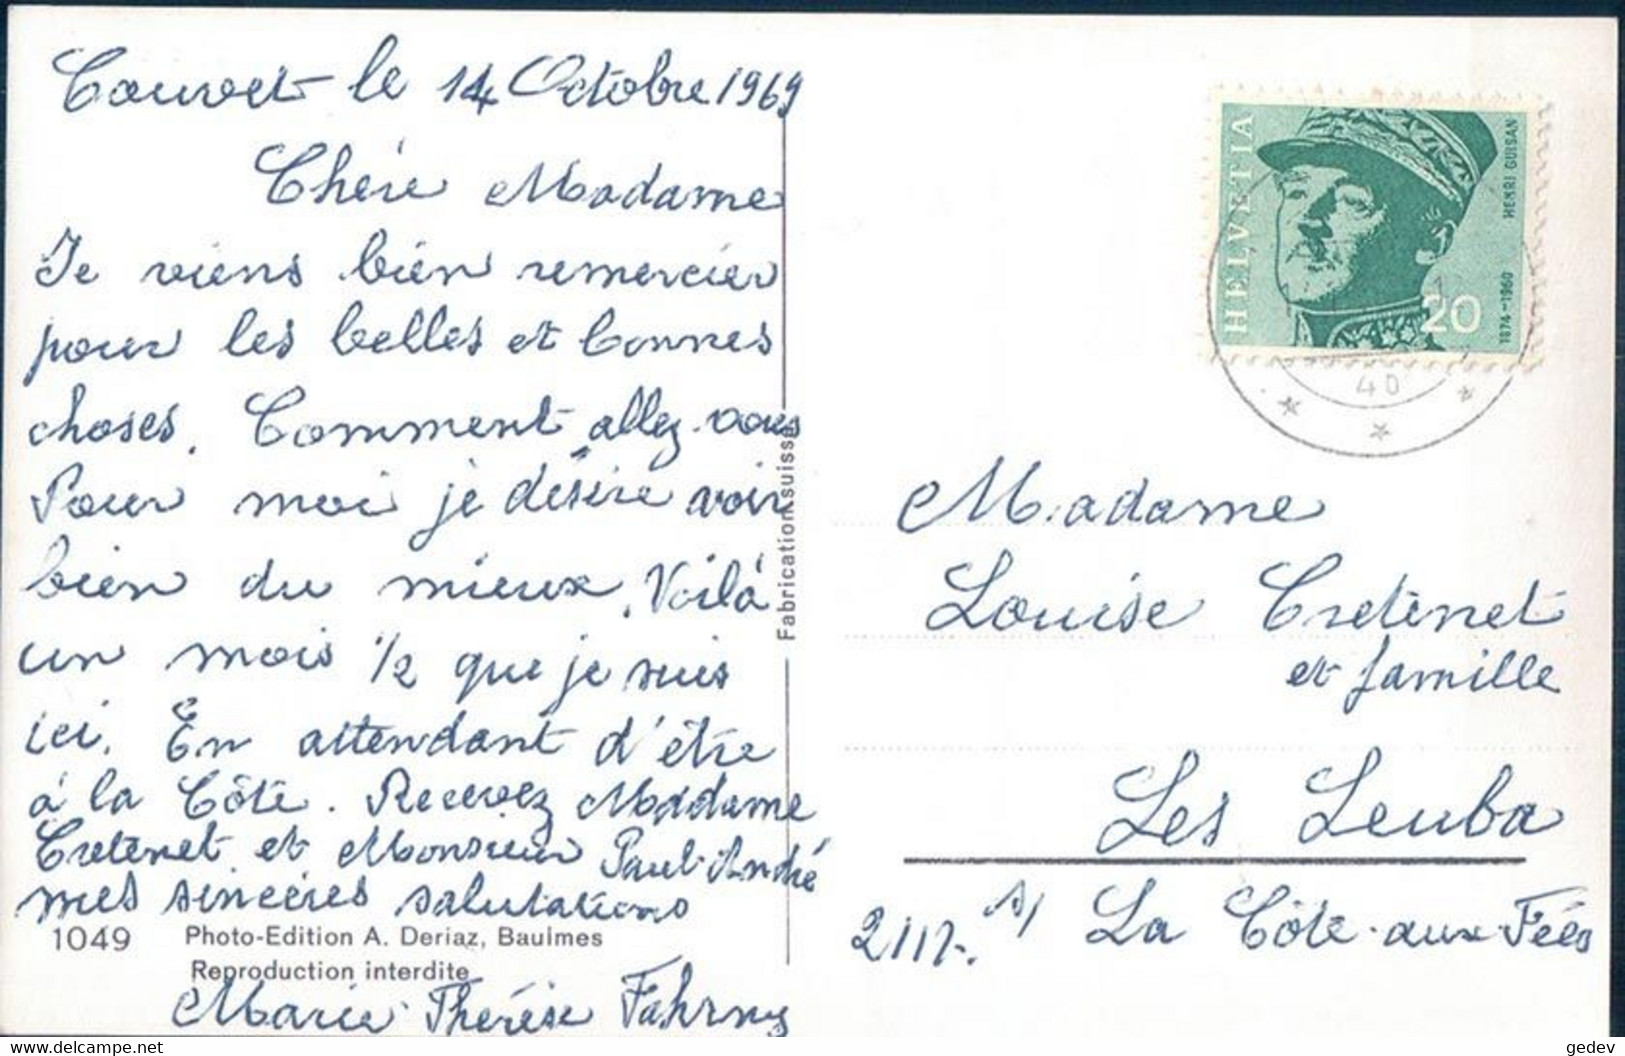 Couvet le 14 Octobre 1969
Chère Madame
Je viens bien remercier
pour les belles et bonnes
choses. Comment allez-vous
Pour moi je désire voir
bien du mieux. Voilà
un mois 1/2 que je suis
ici. En attendant d'être
à la Côte. Recevez Madame
Cretenet et Monsieur Paul-André
mes sincères salutations
Marie-Thérèse Fahrny
1049 Photo-Edition A. Deriaz, Baulmes
Reproduction interdite
Fabrication suisse
HELVETIA
HENRI GUISAN
1874-1960
20
40
Madame
Louise Cretenet
et famille
Les Leuba
2117. s/ La Côte-aux-Fées
gedev
www.delcampe.net